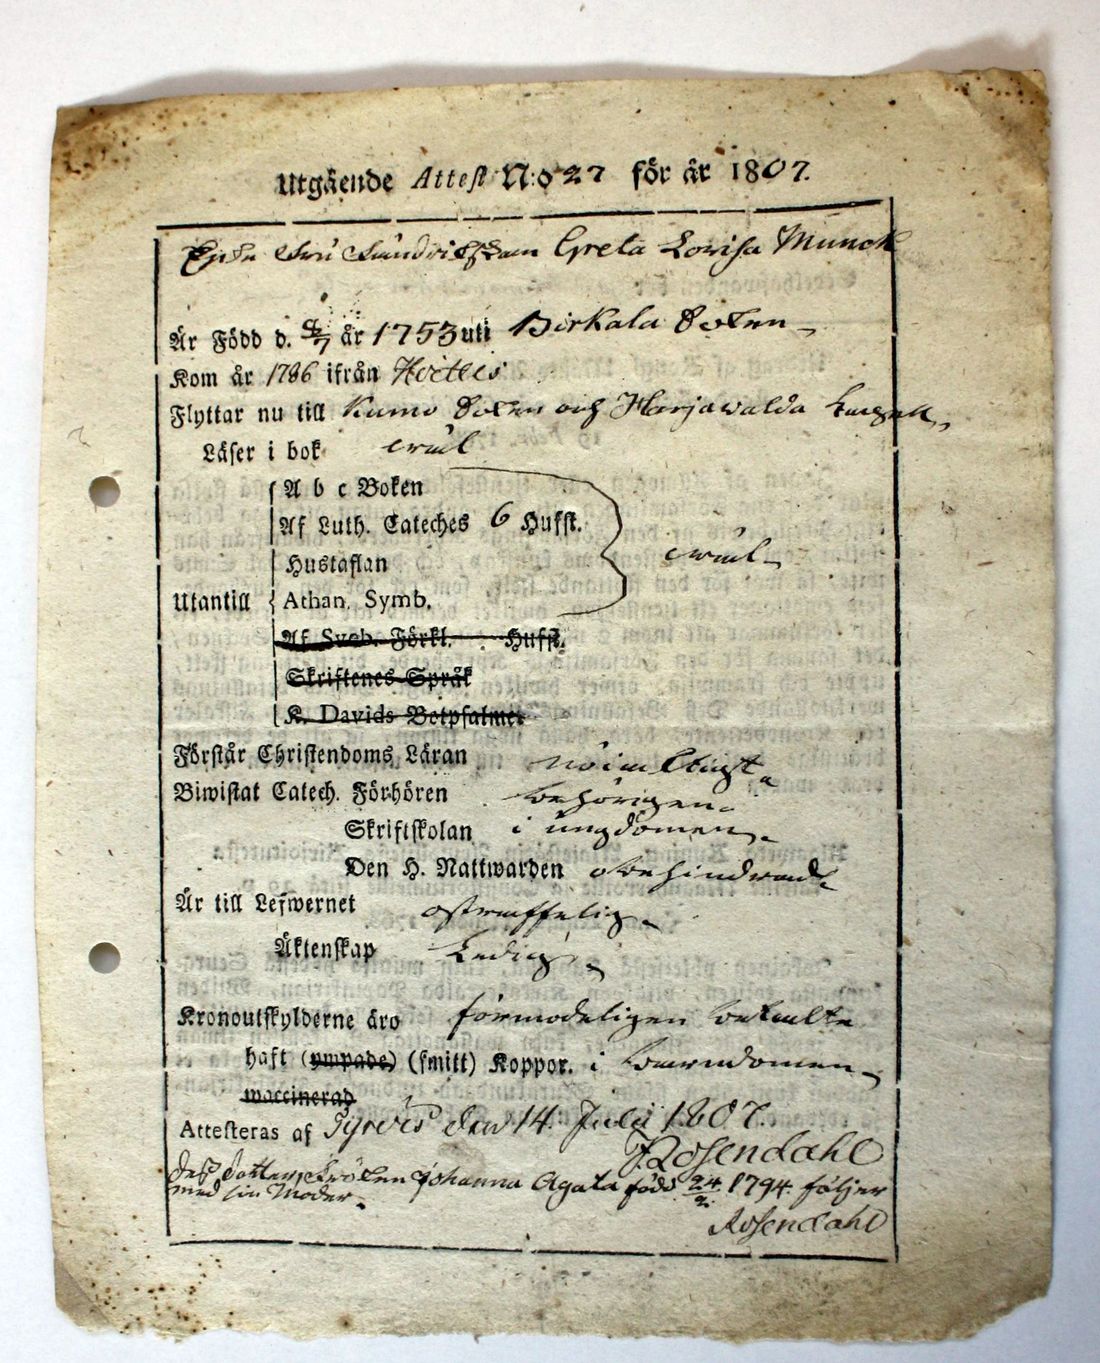 Utgående Attest N:o 27 för år 1807.
Enke Fru Greta Lovisa Munck
Är Född d. 8/7 år 1753 uti Birkala Soken
Kom år 1786 ifrån
Flyttar nu till Kumo Soken och Harjawalda
Läser i bok wäl
A b c Boken
Af Luth. Cateches 6 Hufst.
Hustaflan
wäl
Utantill Athan. Symb.
Af Sveb. Förkl. Hufst.
Skriftenes Språk
K. Davids Botpsalmer
Förstår Christendoms Läran
Biwistat Catech. Förhören behörigen
Skriftskolan i ungdomen
Den H. Nattwarden obehindrad
Är till Lefwernet ostraffelig
Äktenskap Ledig
Kronoutskylderne äro förmodeligen betalte
haft (ympade) (smitt) Koppor. i barndomen
waccinerad
Attesteras af Tyrvis den 14 Julii 1807.
J. Rosendahl
Dess Dotter, Fröken Johanna Agata född 24/2 1794 följer
med sin Moder.
Rosendahl